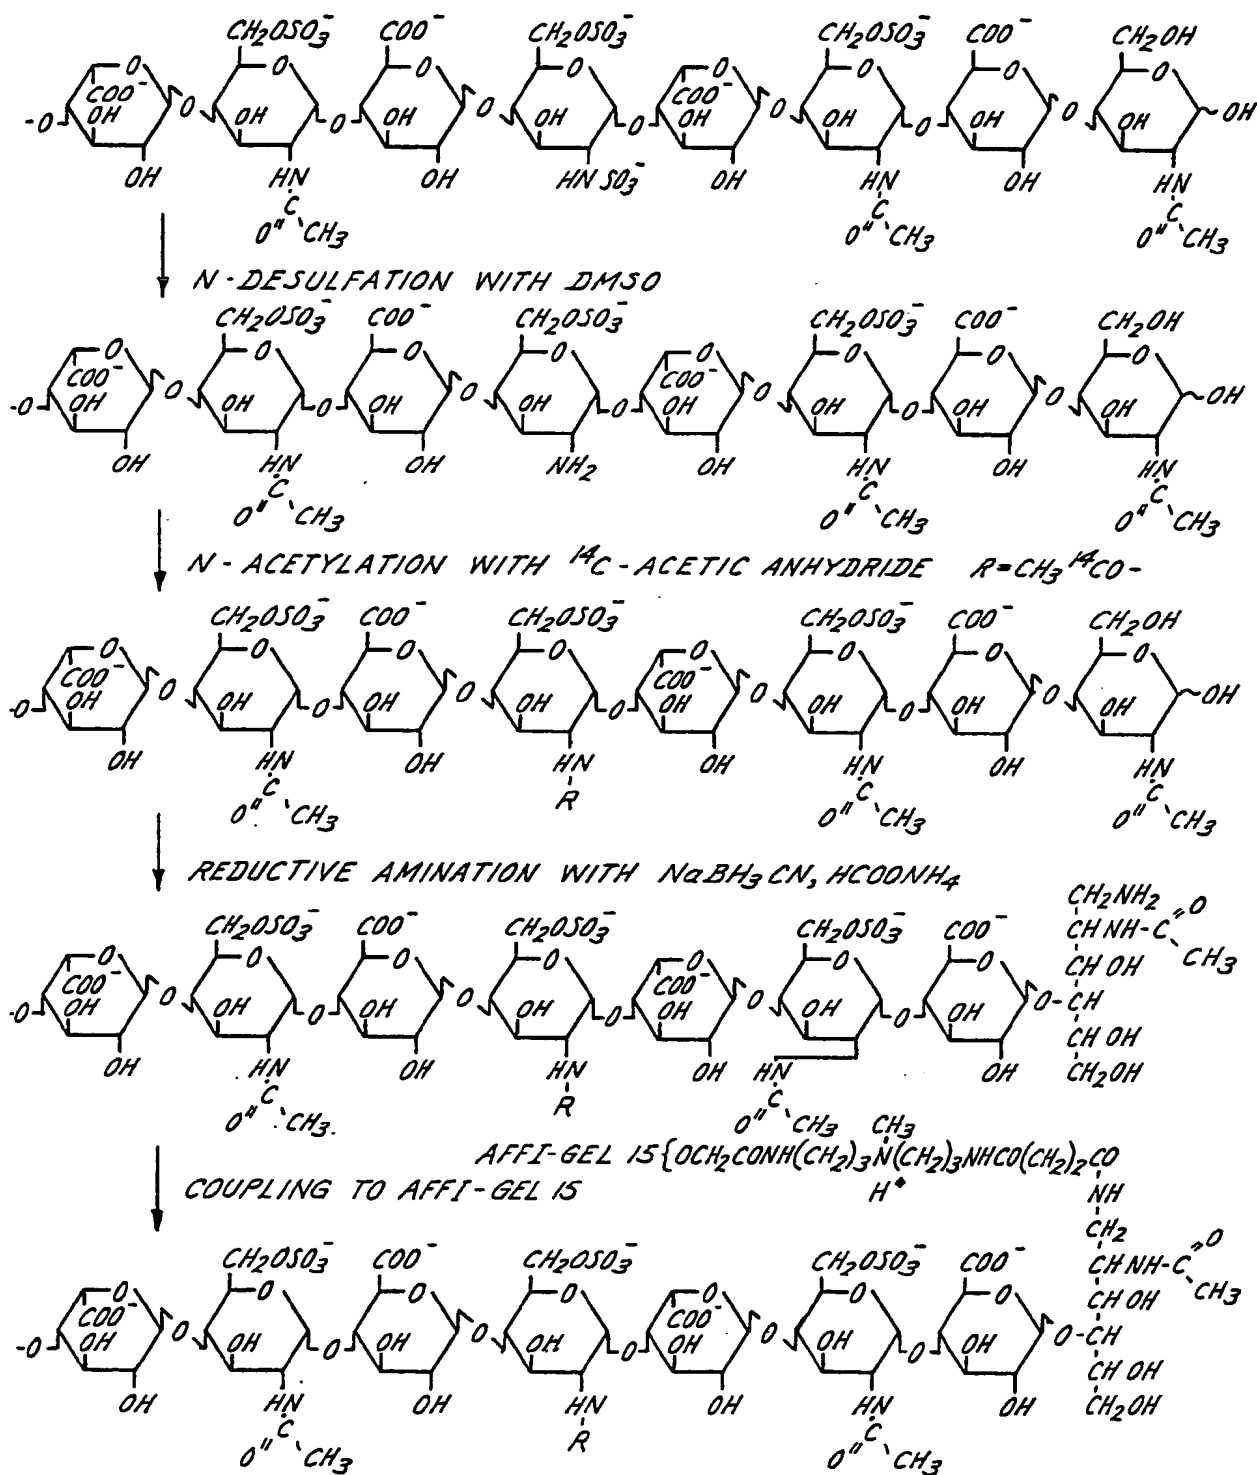 CH2OSO3- COO- CH2OSO3- CH2OSO3- COO- CH2OH
O O O O O O O O
COO- COO-
-O OH O OH O OH O OH O OH O OH O OH O OH OH
OH HN OH HN SO3- OH HN OH HN
C C C
O" CH3 O" CH3 O" CH3
N-DESULFATION WITH DMSO
CH2OSO3- COO- CH2OSO3- CH2OSO3- COO- CH2OH
O O O O O O O O
COO- COO-
-O OH O OH O OH O OH O OH O OH O OH O OH OH
OH HN OH NH2 OH HN OH HN
C C C
O" CH3 O" CH3 O" CH3
N-ACETYLATION WITH 14C-ACETIC ANHYDRIDE R=CH3 14CO-
CH2OSO3- COO- CH2OSO3- CH2OSO3- COO- CH2OH
O O O O O O O O
COO- COO-
-O OH O OH O OH O OH O OH O OH O OH O OH OH
OH HN OH HN OH HN OH HN
C R C C
O" CH3 O" CH3 O" CH3
REDUCTIVE AMINATION WITH NaBH3CN, HCOONH4
CH2NH2
CH2OSO3- COO- CH2OSO3- CH2OSO3- COO- CH NH-C O
O O O O O O O CH OH CH3
COO- COO-
-O OH O OH O OH O OH O OH O OH O OH O-CH
CH OH
OH HN OH HN OH HN OH CH2OH
C R C
O" CH3 O" CH3
AFFI-GEL 15{OCH2CONH(CH2)3N(CH2)3NHCO(CH2)2CO
CH3
H+
COUPLING TO AFFI-GEL 15
NH
CH2
CH2OSO3- COO- CH2OSO3- CH2OSO3- COO- CH NH-C O
O O O O O O O CH OH CH3
COO- COO-
-O OH O OH O OH O OH O OH O OH O OH O-CH
CH OH
OH HN OH HN OH HN OH CH2OH
C R C
O" CH3 O" CH3